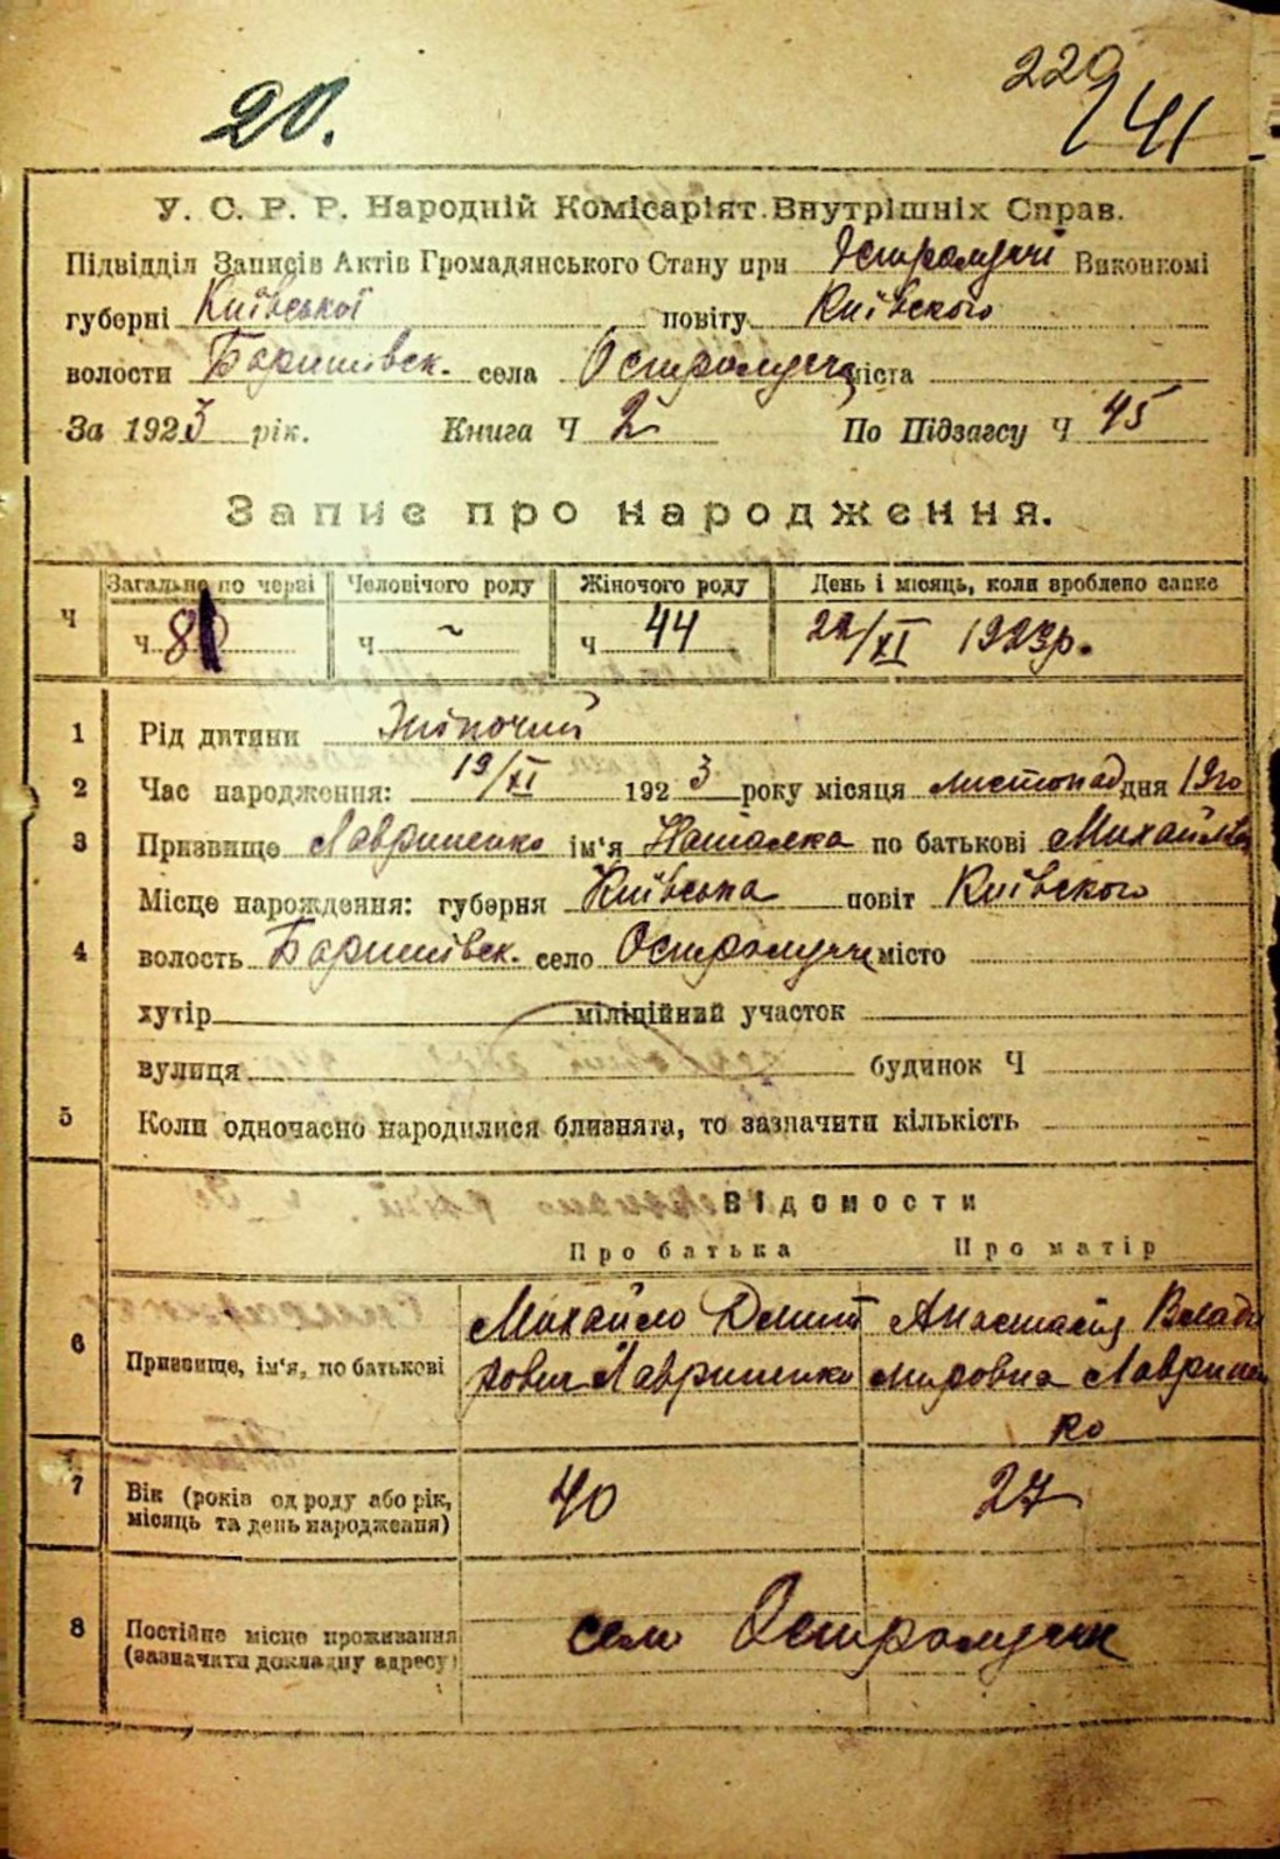 20.
220
241
У. С. Р. Р. Народній Комісаріят Внутрішніх Справ.
Підвідділ Записів Актів Громадянського Стану при Остролуччі Виконкомі
губерні Київської повіту Київского
волости Баришівск. села Остролуччя міста
За 1923 рік. Книга Ч 2 По Підзагсу Ч 45
Запис про народження.
Ч Загально по черзі Человічого роду Жіночого роду День і місяць, коли зроблено запис
Ч. 81 Ч ~ Ч 44 22/XI 1923р.
1 Рід дитини Жіночий
2 Час народження: 19/XI 1923 року місяця листопад дня 19го
3 Призвище Лавриненко ім'я Наталка по батькові Михайлів
Місце народження: губерня Київська повіт Київского
4 волость Баришівск. село Остролуччє місто
хутір міліційний участок
вулиця будинок Ч
5 Коли одночасно народилися близнята, то зазначити кількість
Відомости
Про батька Про матір
6 Призвище, ім'я, по батькові
Михайло Дмит Анастасія Влади
рович Лавриненко мировна Лавринен
ко
7 Вік (років од роду або рік, 40 27
місяць та день народження)
8 Постійне місце проживання село Остролуччє
(зазначити докладну адресу)